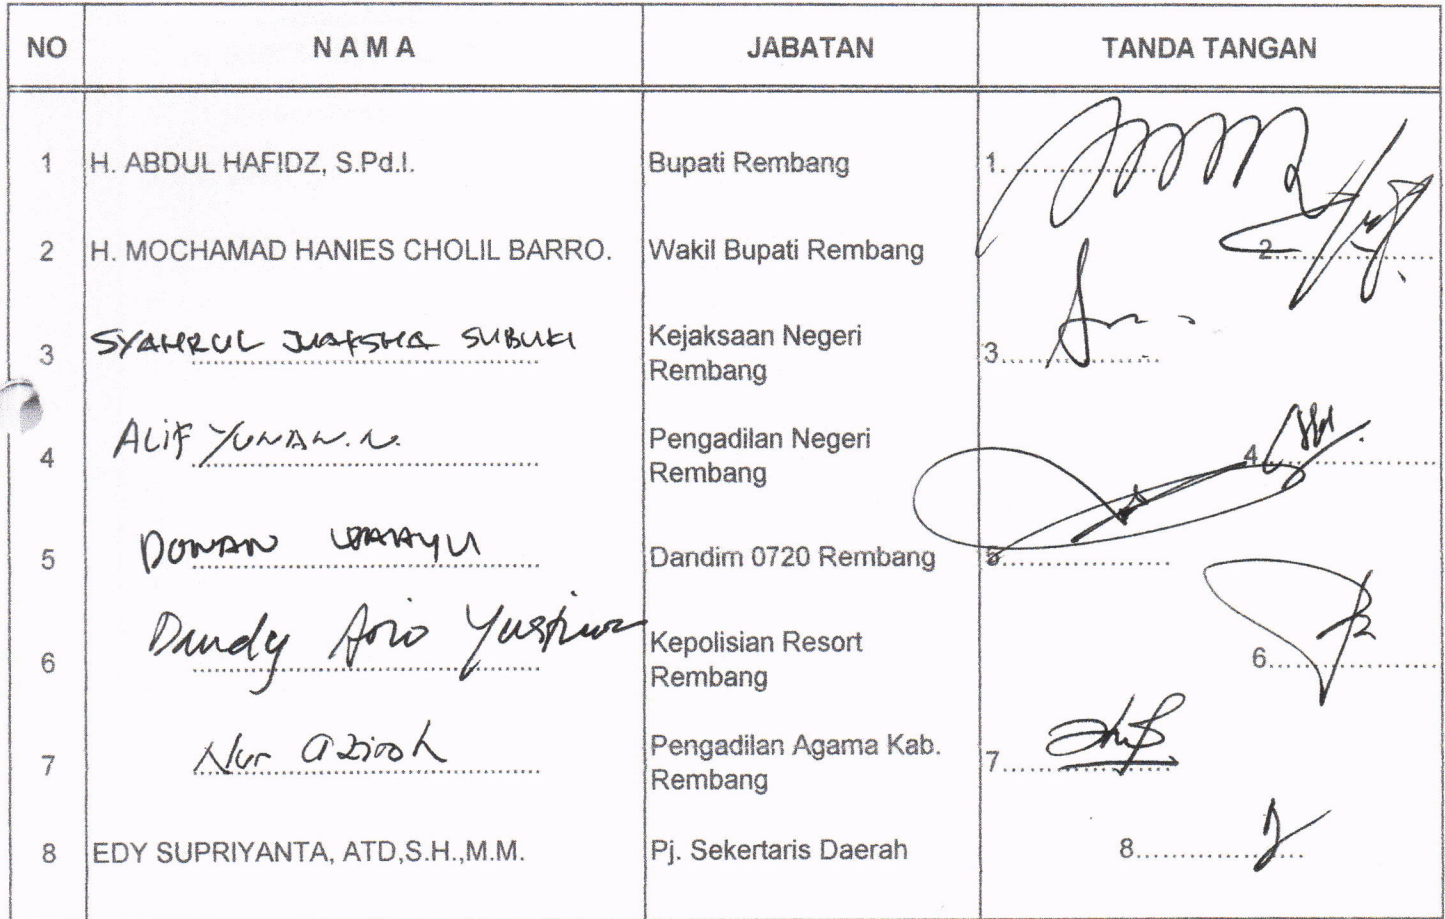 NO N A M A JABATAN TANDA TANGAN
1 H. ABDUL HAFIDZ, S.Pd.I. Bupati Rembang 1...................
2 H. MOCHAMAD HANIES CHOLIL BARRO. Wakil Bupati Rembang 2...................
3 SYAHRUL JUAKSHA SUBUKI Kejaksaan Negeri
Rembang 3...................
4 ALIF YUNAN.N. Pengadilan Negeri
Rembang 4...................
5 DONAN Dandim 0720 Rembang 5...................
6 Dandy Ario Yustiawan Kepolisian Resort
Rembang 6...................
7 Nur Azizah Pengadilan Agama Kab.
Rembang 7...................
8 EDY SUPRIYANTA, ATD,S.H.,M.M. Pj. Sekertaris Daerah 8...................